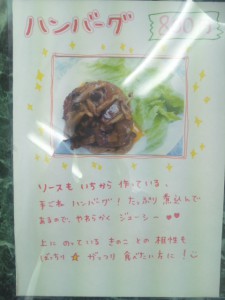 ハンバーグ
ソースも いちから 作っている、
手ごね ハンバーグ! たっぷり 煮込んで
あるので、やわらかく ジューシー ♥♥
上に のっている きのこ との 相性も
ばっちり ☆ ガッツリ 食べたい方に!